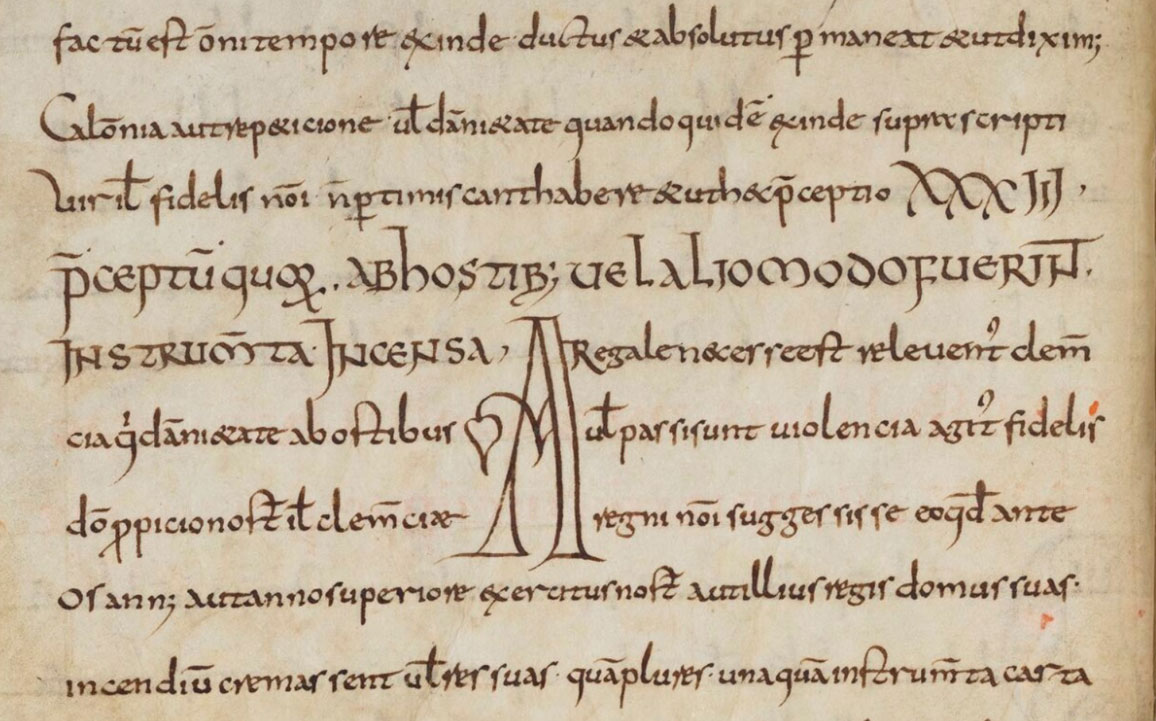 factūest ōnitempore exinde ductus &absolutus ꝑmaneat &utdiximꝰ
Calōnia autrep&icione ul̄ dām&ate quandoquidē exinde suprascripti
Viril̄ fidelis nōi n̄ꝑtimiscant habere &uth& p̄ceptio XXXIII,
p̄CEPTŪ QUOꝗ. ABHOSTIBꝰ VEL ALIOMODO FUERIN̄T.
INSTRUM̄TA INCENSA, Regale n&cesse est relevent᷒ clem̄
cia qi dām&ate abostibus ul̄ passisunt violencia agit᷒ fidelis
dō ꝓpicio nost̄ il̄ clem̄ciæ regni nōi suggessisse eo qd̄ ante
Os annꝰ autannosuperiore exercitus nost̄ autillius regis domus suas.
incendiū cremassent ul̄ res suas. quāplures. una quā instrum̄ta casta